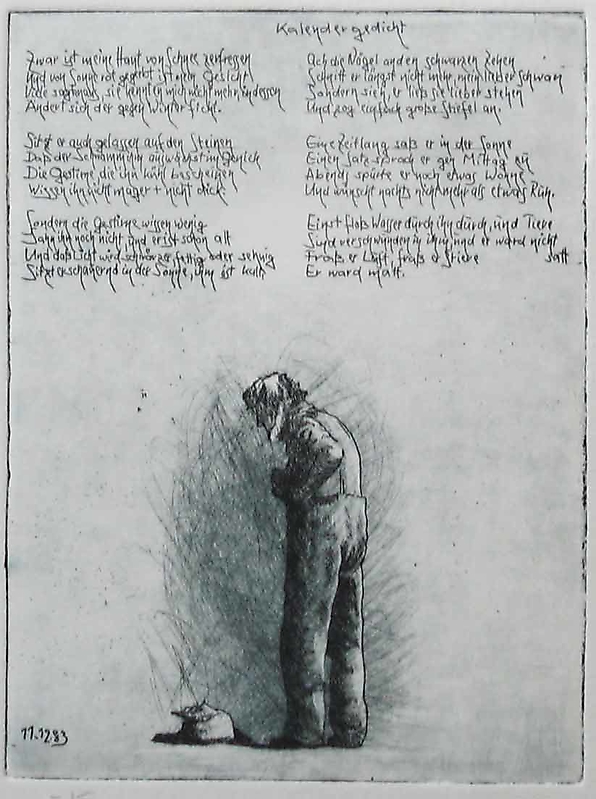 Kalendergedicht
Zwar ist meine Haut von Schnee zerfressen
Und von Sonne rot gegerbt ist mein Gesicht
Viele sagten aus, sie kennten mich nicht mehr, indessen
Ändert sich der gegen Winter ficht.
Sitzt er auch gelassen auf den Steinen
Daß der Schwamm ihm auswächst im Genick
Die Gestirne die ihn kühl bescheinen
Wissen ihn nicht mager + nicht dick.
Sondern die Gestirne wissen wenig
Sahn ihn noch nicht, und er ist schon alt
Und das Licht wird schwärzer, fettig oder sehnig
Sitzt er schauernd in der Sonne, ihm ist kalt.
Ach die Nägel an den schwarzen Zehen
Schnitt er längst nicht mehr, mein lieber Schwan
Sondern sieh, er ließ sie lieber stehen
Und zog einfach große Stiefel an.
Eine Zeitlang saß er in der Sonne
Einen Satz sprach er gen Mittag ein
Abends spürte er noch etwas Wonne
Und wünscht nachts nicht mehr als etwas Ruhn.
Einst floß Wasser durch ihn durch, und Tiere
Sind verschwunden in ihm, und er ward nicht satt
Fraß er Luft, fraß er Stiere
Er ward matt.
11.12.83